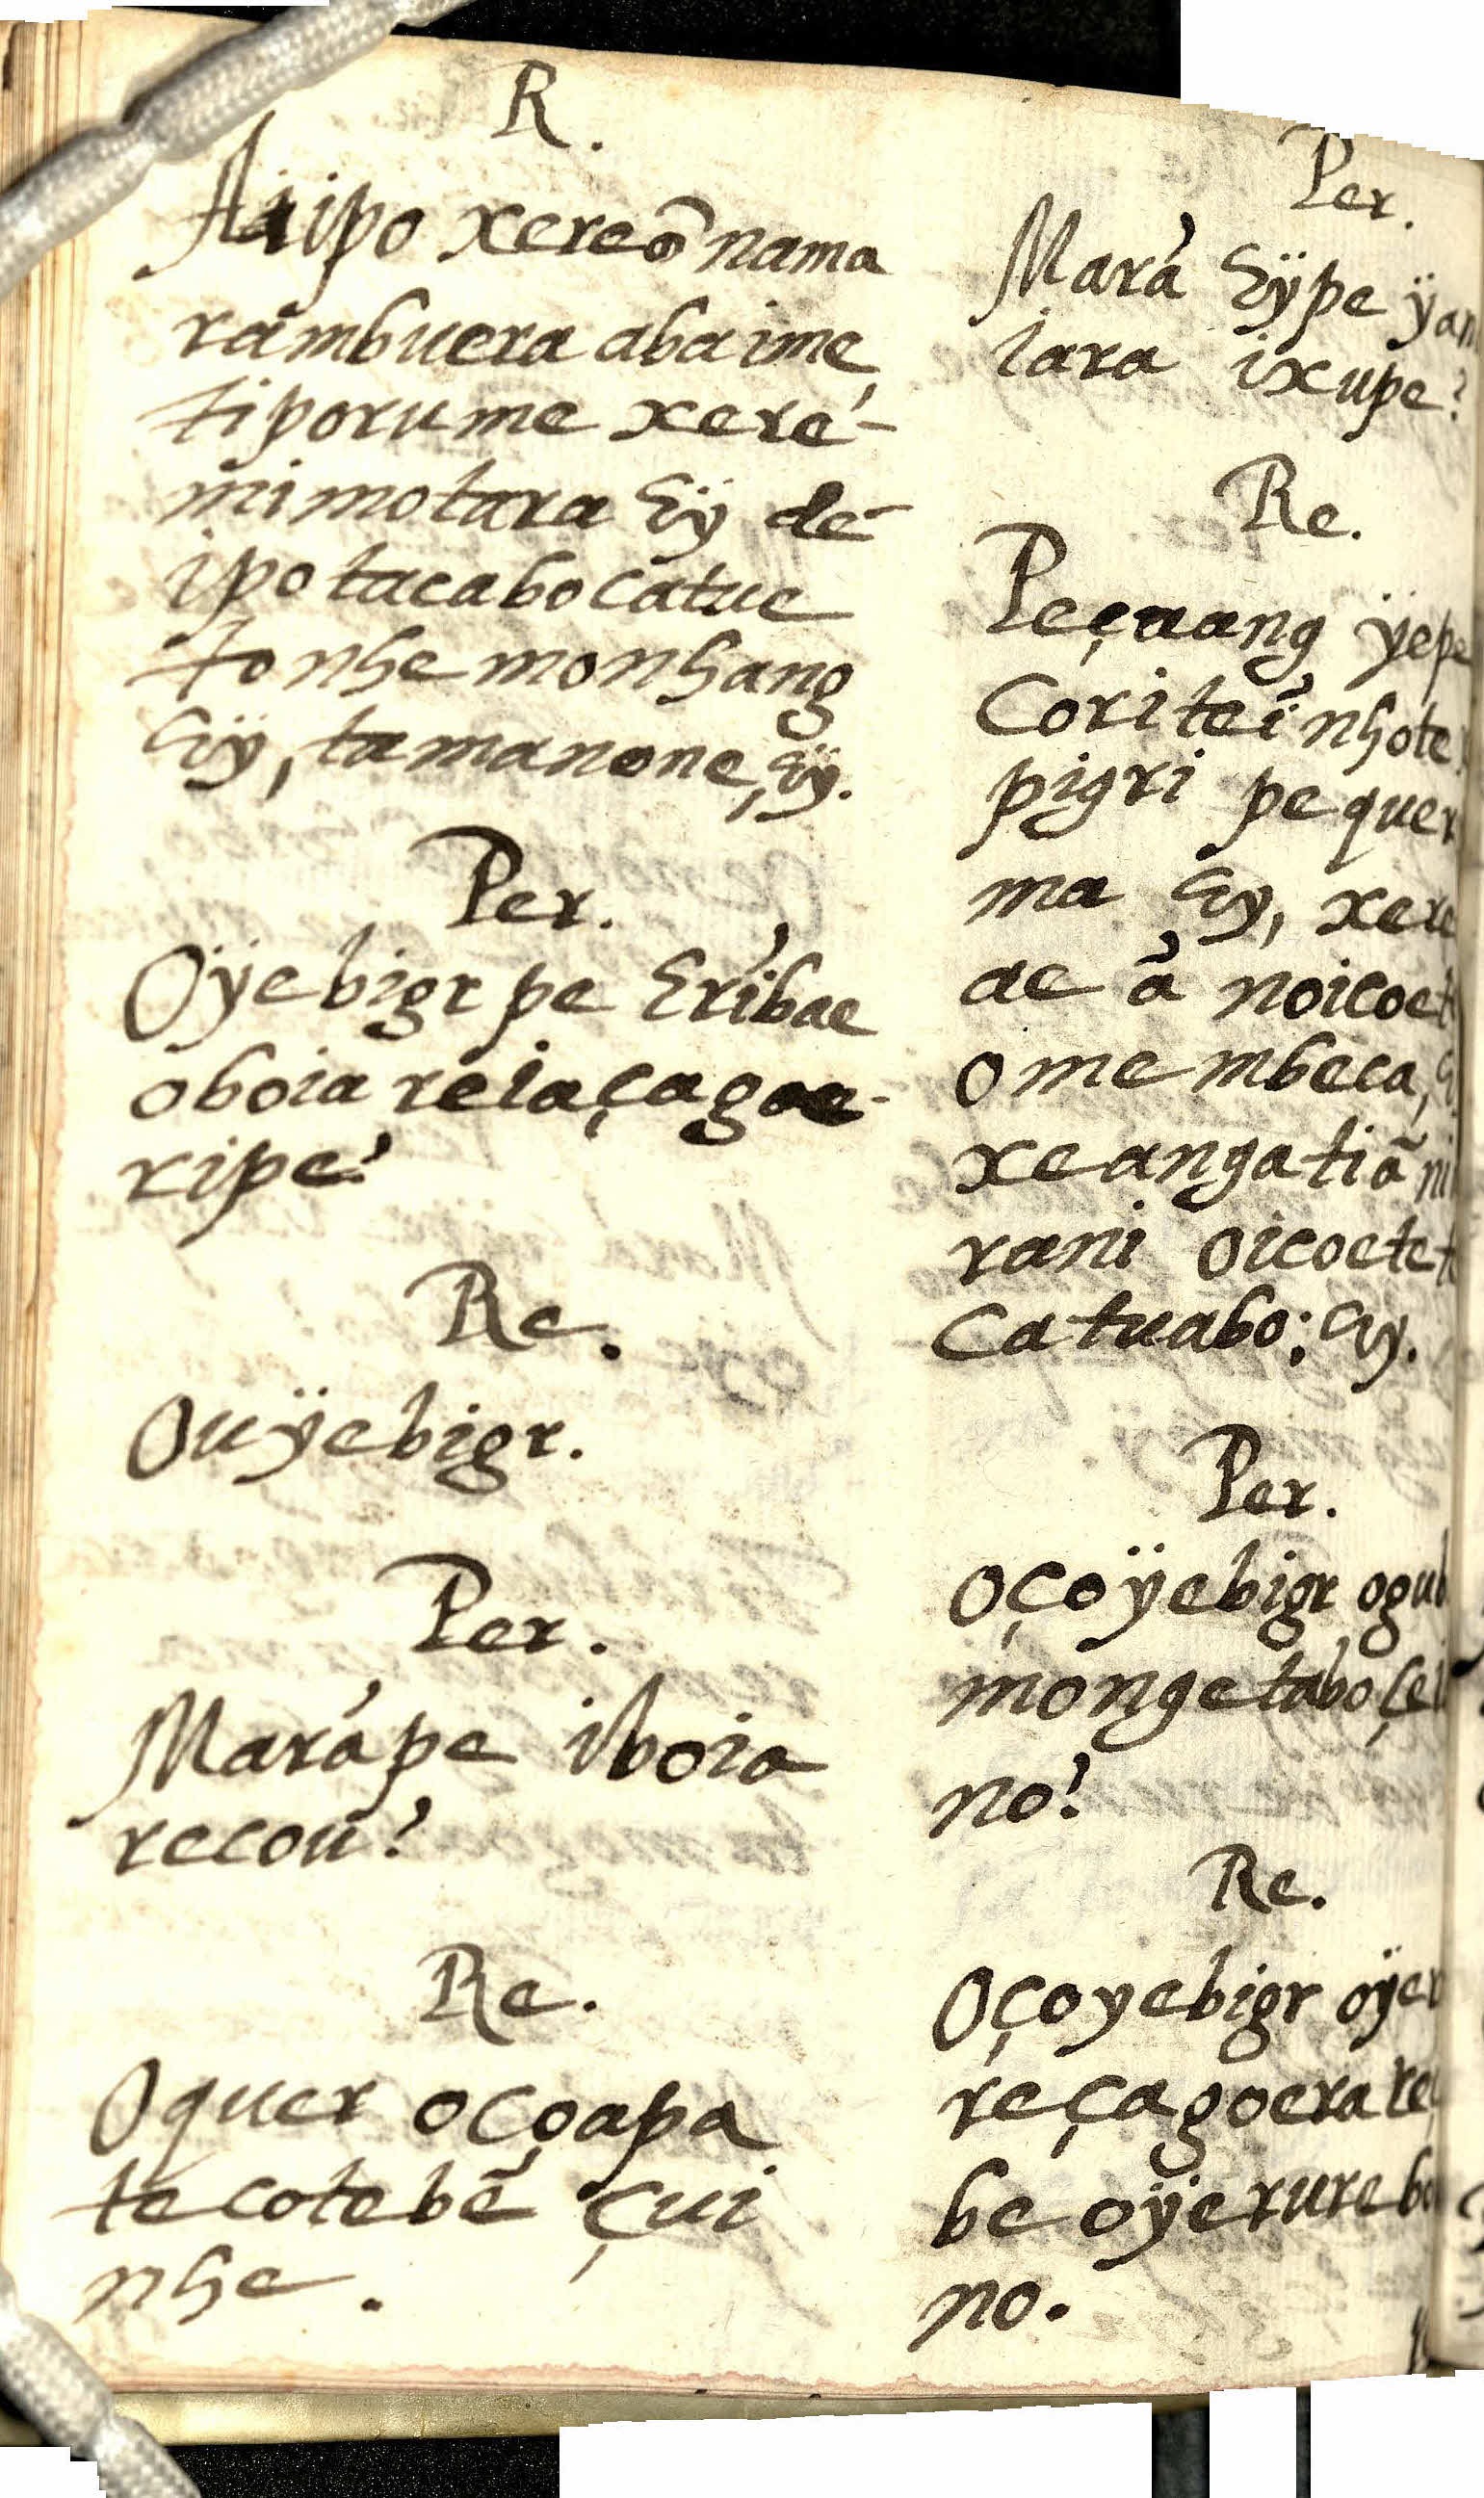 R.
Aiipo xereõ nama
rambuera aba ime
tiporu me xere-
mimotara Eÿ de-
ipotacabo catue
to nhe monhang
Eÿ, ta manone, Eÿ.
Per.
Oÿebigr pe Eribae
oboia reiaçagoe-
ripe?
Re.
Ouÿebigr.
Per.
Marápe iboia
recou?
Re.
Oquer oçoapa
tecotebẽ çui
nhe.
Per.
Mará Eÿpe
lara ixupe?
Re.
Peçaang ÿepe
Coriteĩ nhote
pigri pe quer
ma Eÿ, xere
de ã noicoet
ome mbeca,
xe angatiã ni
rani oicoete
Catuabo; Eÿ.
Per.
Oçoÿebigr ogub
mongetabo çe
no?
Re.
Oçoyebigr oÿer
reçagoera
be oÿerurebo
no.